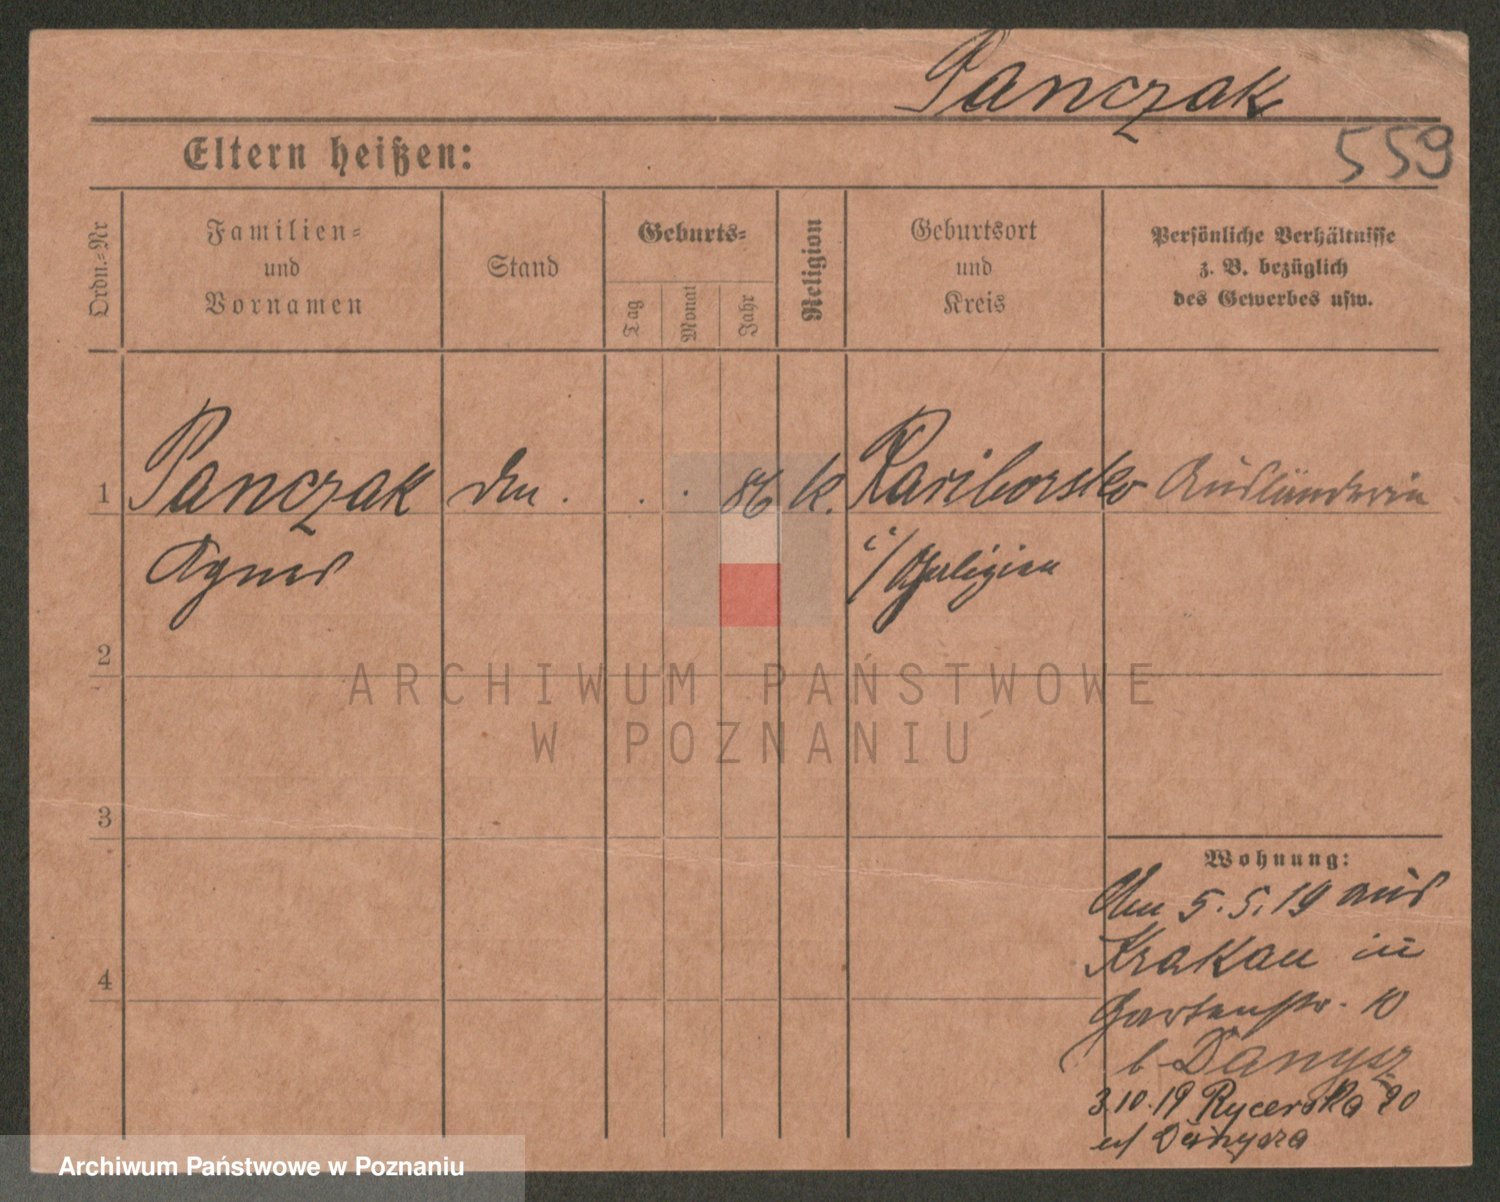 Panczak
559
Eltern heißen:
Ordn.=Nr
Familien=
und
Vornamen
Stand
Geburts=
Tag
Monat
Jahr
Religion
Geburtsort
und
Kreis
Persönliche Verhältnisse
z. B. bezüglich
des Gewerbes usw.
1 Panczak 86 k. Rariborsko Ausländerin
Agnes i/ Galizien
2
ARCHIWUM PAŃSTWOWE
W POZNANIU
3
Wohnung:
Am 5.5.19 aus
4 Krakau in
Gartenstr. 10
b Danysz
3.10.19 Rycerska 20
u/ Danysza
Archiwum Państwowe w Poznaniu